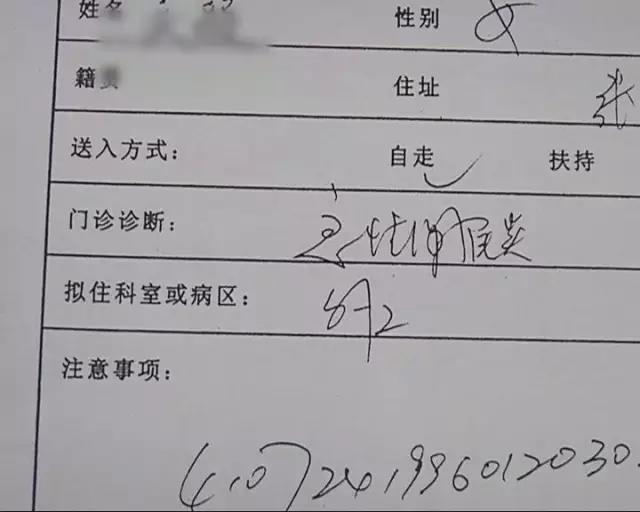 姓名 性别 女
籍贯 住址 张
送入方式： 自走 ✓ 扶持
门诊诊断： 急性
拟住科室或病区： 外2
注意事项：
4107241996012030